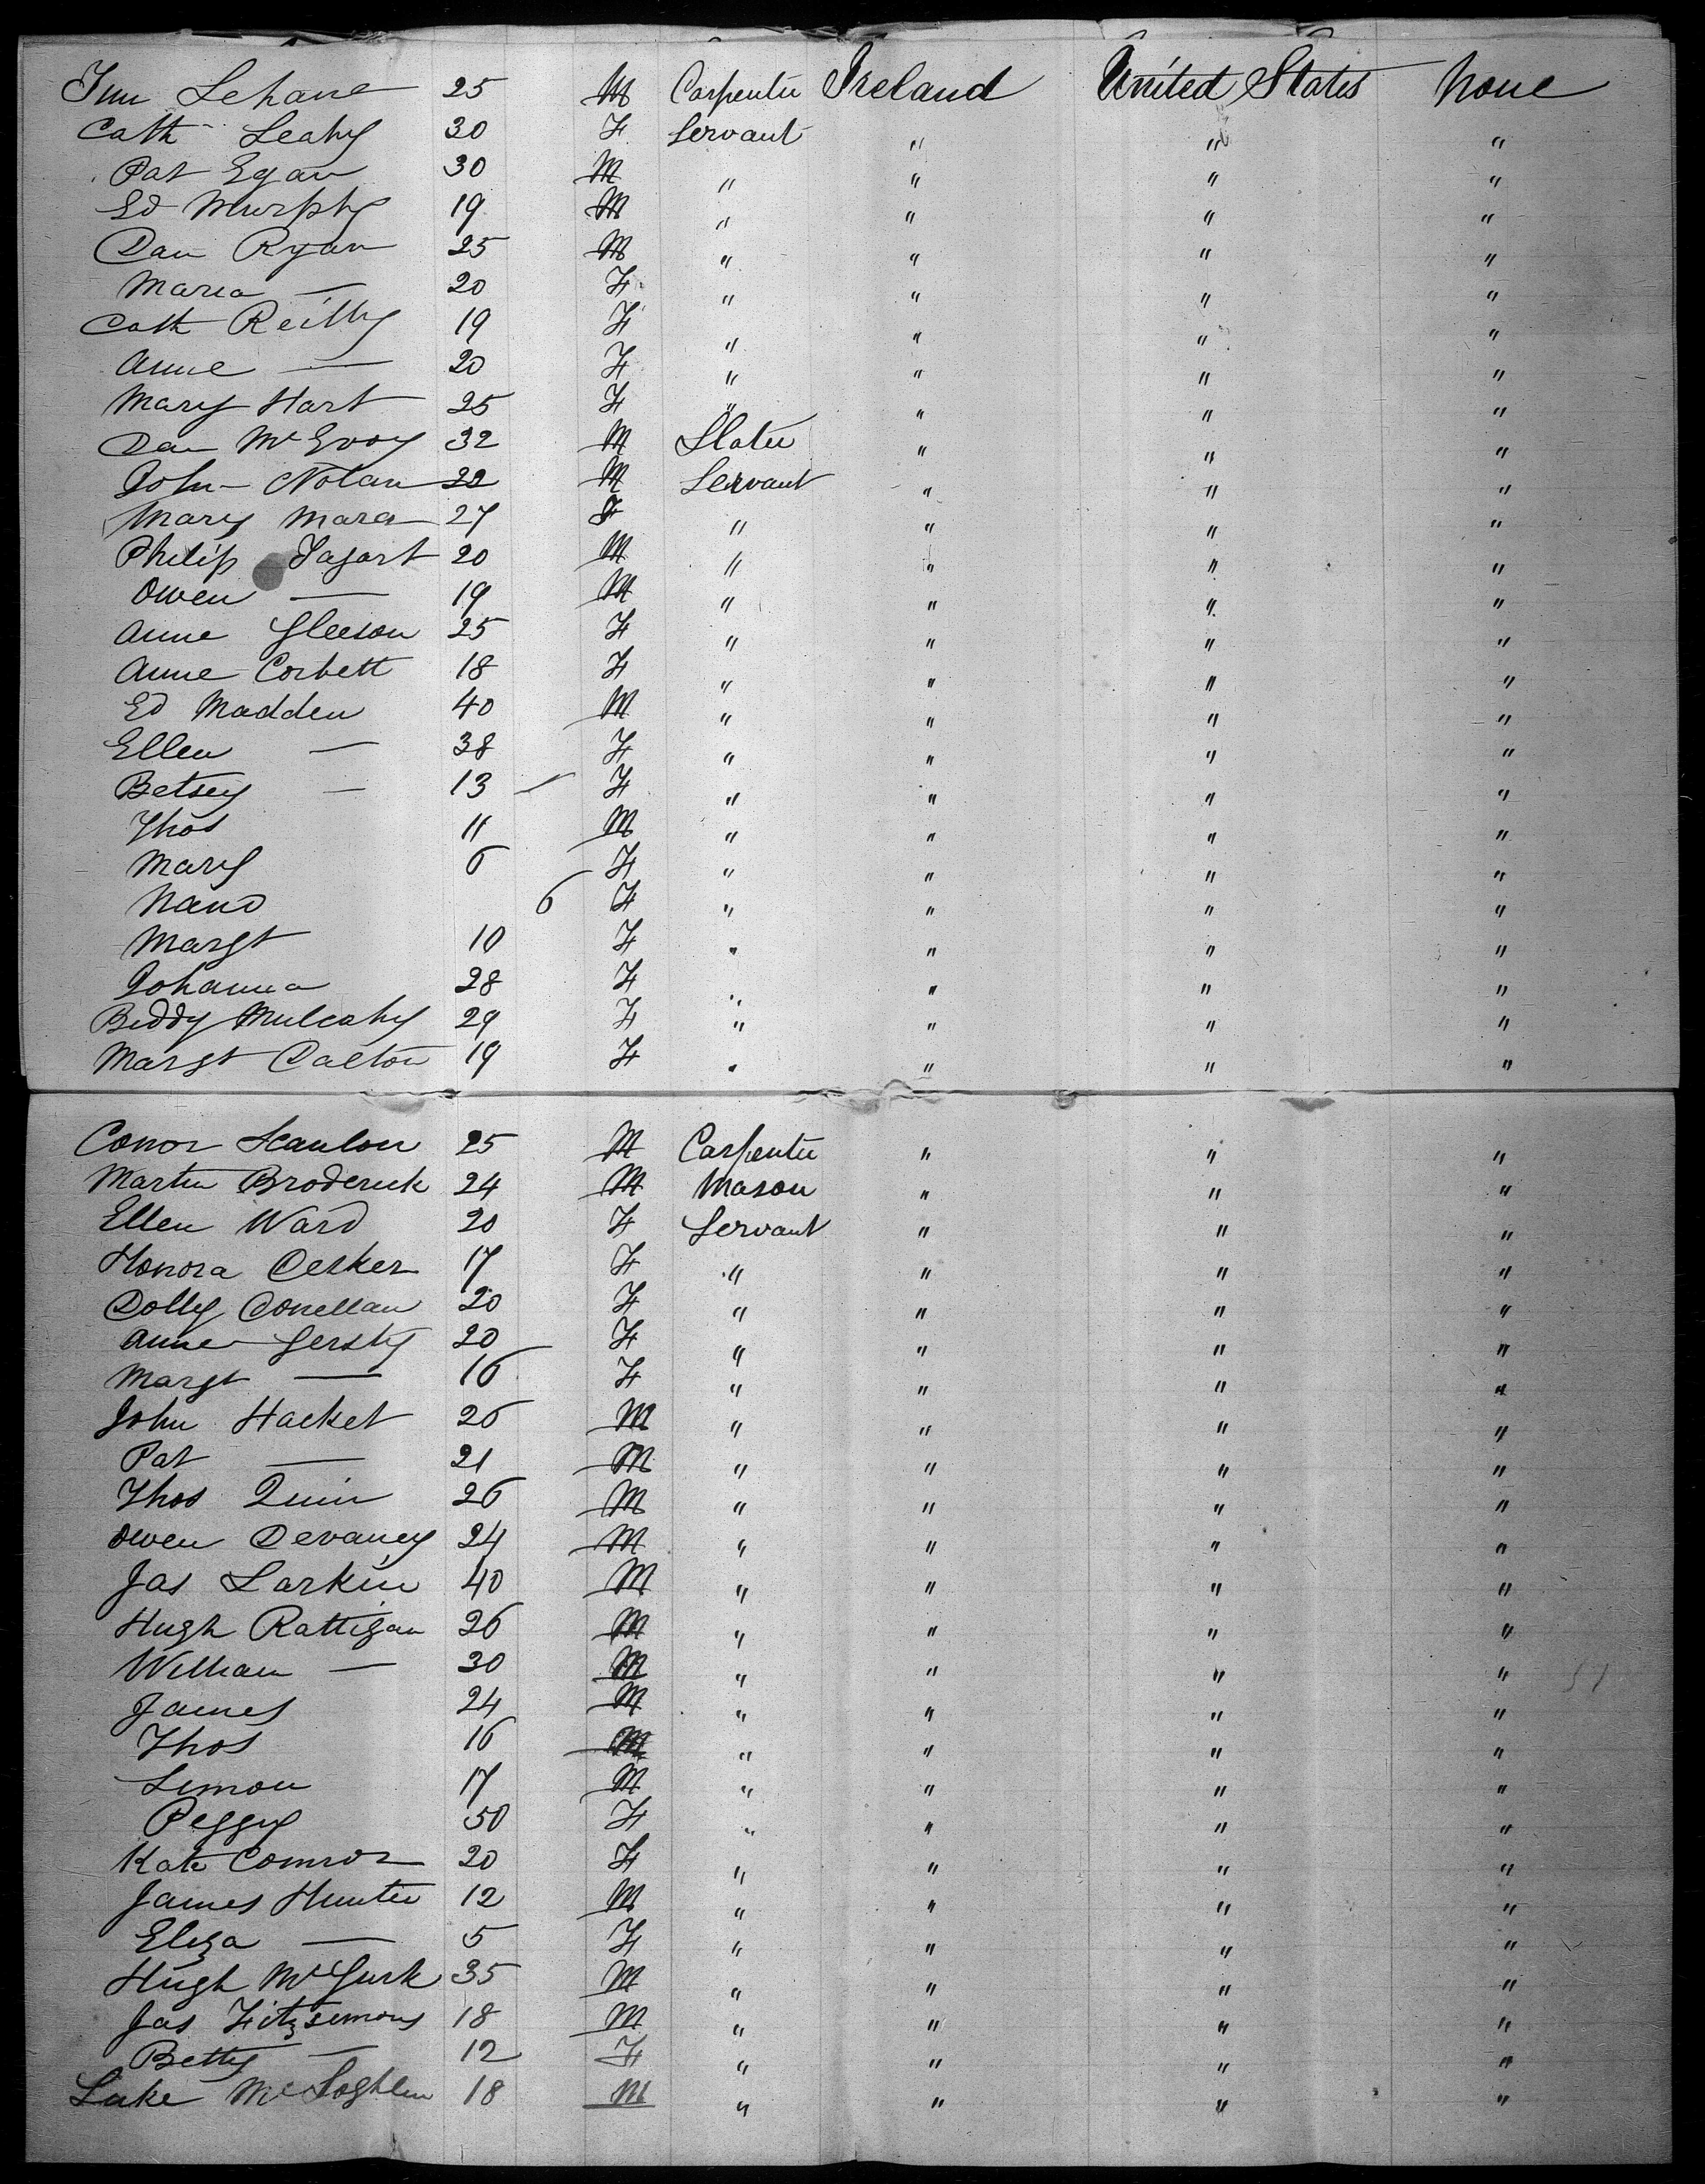 Lehane 25 M Carpenter Ireland United States None
Cath Leahy 30 F Servant " " "
Pat Egan 30 M " " " "
Ed Murphy 19 M " " " "
Dan Ryan 25 M " " " "
Maria — 20 F " " " "
Cath Reilly 19 F " " " "
Anne — 20 F " " " "
Mary Hart 25 F " " " "
Dan McEvoy 32 M Slater " " "
John Nolan 22 M Servant " " "
Mary Mara 27 F " " " "
Philip Tagart 20 M " " " "
Owen — 19 M " " " "
Anne Gleeson 25 F " " " "
Anne Corbett 18 F " " " "
Ed Madden 40 M " " " "
Ellen — 38 F " " " "
Betsey — 13 F " " " "
Thos 11 M " " " "
Mary 6 F " " " "
6 F " " " "
Margt 10 F " " " "
Johanna 28 F " " " "
Biddy Mulcahy 29 F " " " "
Margt Dalton 19 F " " " "
Conor Scanlon 25 M Carpenter " " "
Martin Broderick 24 M Mason " " "
Ellen Ward 20 F Servant " " "
Honora 17 F " " " "
Dolly Donellan 20 F " " " "
Anne 20 F " " " "
Margt — 16 F " " " "
John Hacket 26 M " " " "
Pat — 21 M " " " "
Thos Quin 26 M " " " "
Owen Devaney 24 M " " " "
Jas Larkin 40 M " " " "
Hugh Rattigan 26 M " " " "
William — 30 M " " " "
James 24 M " " " "
Thos 16 M " " " "
Simon 17 M " " " "
Peggy 50 F " " " "
Kate Connor 20 F " " " "
James Hunter 12 M " " " "
Eliza — 5 F " " " "
Hugh McGurk 35 M " " " "
Jas Fitzsimons 18 M " " " "
Betty — 12 F " " " "
Luke McLoghlin 18 M " " " "